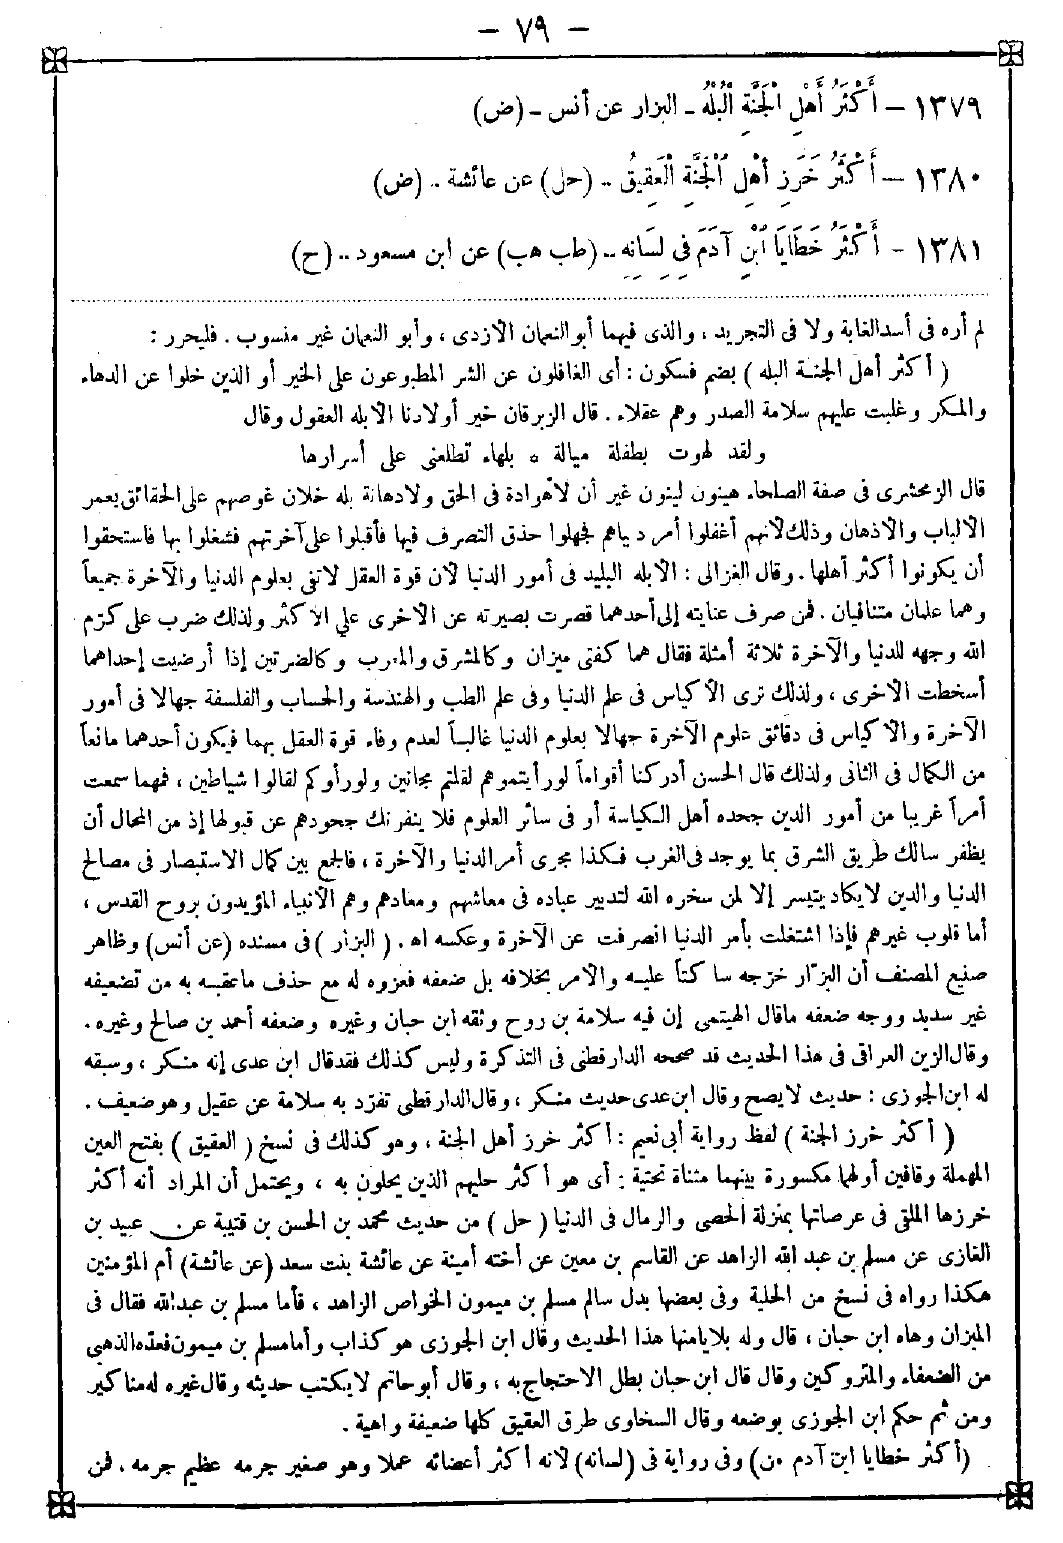 - ٧٩ -
١٣٧٩ - أَكْثَرُ أَهْلِ الْجَنَّةِ الْبُلْهُ - البزار عن أنس - (ض)
١٣٨٠ - أَكْثَرُ خَرَزِ أَهْلِ الْجَنَّةِ الْعَقِيقُ - (حل) عن عائشة - (ض)
١٣٨١ - أَكْثَرُ خَطَايَا ابْنِ آدَمَ فِي لِسَانِهِ - (طب هب) عن ابن مسعود - (ح)
لم أره فى أسد الغابة ولا فى التجريد ، والذى فيهما أبو النعمان الازدى ، وأبو النعمان غير منسوب . فليحرر :
( أكثر أهل الجنة البله ) بضم فسكون : أى الغافلون عن الشر المطبوعون على الخير أو الذين خلوا عن الدهاء
والمكر وغلبت عليهم سلامة الصدر وهم عقلاء . قال الزبرقان خير أولادنا الابله العقول وقال
ولقد لهوت بطفلة ميالة * بلهاء تطلعنى على أسرارها
قال الزمخشرى فى صفة الصلحاء هينون لينون غير أن لاهوادة فى الحق ولادهانة بله خلان غوصهم على الحقائق يعمر
الالباب والاذهان وذلك لانهم أغفلوا أمر دنياهم فجهلوا حذق التصرف فيها فأقبلوا على آخرتهم فشغلوا بها فاستحقوا
أن يكونوا أكثر أهلها . وقال الغزالى : الابله البليد فى أمور الدنيا لان قوة العقل لاتفى بعلوم الدنيا والآخرة جميعاً
وهما علمان متنافيان . فمن صرف عنايته إلى أحدهما قصرت بصيرته عن الاخرى على الاكثر ولذلك ضرب على كرّم
الله وجهه للدنيا والآخرة ثلاثة أمثلة فقال هما كفتى ميزان وكالمشرق والمغرب وكالضرتين إذا أرضيت إحداهما
أسخطت الاخرى ، ولذلك نرى الأكياس فى علم الدنيا وفى علم الطب والهندسة والحساب والفلسفة جهالا فى أمور
الآخرة والأكياس فى دقائق علوم الآخرة جهالا بعلوم الدنيا غالباً لعدم وفاء قوة العقل بهما فيكون أحدهما مانعاً
من الكمال فى الثانى ولذلك قال الحسن أدركنا أقواماً لو رأيتموهم لقلتم مجانين ولو رأوكم لقالوا شياطين ، فمهما سمعت
أمراً غريبا من أمور الدين جحده أهل الكياسة أو فى سائر العلوم فلا ينفرنك جحودهم عن قبولها إذ من المحال أن
يظفر سالك طريق الشرق بما يوجد فى الغرب فكذا مجرى أمر الدنيا والآخرة ، فالجمع بين كمال الاستبصار فى مصالح
الدنيا والدين لايكاد يتيسر إلا لمن سخره الله لتدبير عباده فى معاشهم ومعادهم وهم الانبياء المؤيدون بروح القدس ،
أما قلوب غيرهم فإذا اشتغلت بأمر الدنيا انصرفت عن الآخرة وعكسه اه . ( البزار ) فى مسنده (عن أنس) وظاهر
صنيع المصنف أن البزّار خرّجه ساكتاً عليه والامر بخلافه بل ضعفه فعزوه له مع حذف ماعقبه به من تضعيفه
غير سديد ووجه ضعفه ماقال الهيتمى إن فيه سلامة بن روح وثقه ابن حبان وغيره وضعفه أحمد بن صالح وغيره .
وقال الزين العراقى فى هذا الحديث قد صححه الدارقطنى فى التذكرة وليس كذلك فقد قال ابن عدى إنه منكر ، وسبقه
له ابن الجوزى : حديث لايصح وقال ابن عدى حديث منكر ، وقال الدارقطنى تفرّد به سلامة عن عقيل وهو ضعيف .
( أكثر خرز الجنة ) لفظ رواية أبى نعيم : أكثر خرز أهل الجنة ، وهو كذلك فى نسخ ( العقيق ) بفتح العين
المهملة وقافين أولهما مكسورة بينهما مثناة تحتية : أى هو أكثر حليهم الذين يحلون به ، ويحتمل أن المراد أنه أكثر
خرزها الملقى فى عرصاتها بمنزلة الحصى والرمال فى الدنيا ( حل ) من حديث محمد بن الحسن بن قتيبة عن عبيد بن
الغازى عن مسلم بن عبد الله الزاهد عن القاسم بن معين عن أخته أمينة عن عائشة بنت سعد (عن عائشة) أم المؤمنين
هكذا رواه فى نسخ من الحلية وفى بعضها بدل سالم مسلم بن ميمون الخواص الزاهد ، فأما مسلم بن عبد الله فقال فى
الميزان وهاه ابن حبان ، قال وله بلايا منها هذا الحديث وقال ابن الجوزى هو كذاب وأما مسلم بن ميمون فعدّه الذهبى
من الضعفاء والمتروكين وقال قال ابن حبان بطل الاحتجاج به ، وقال أبو حاتم لا يكتب حديثه وقال غيره له مناكير
ومن ثم حكم ابن الجوزى بوضعه وقال السخاوى طرق العقيق كلها ضعيفة واهية .
(أكثر خطايا ابن آدم من) وفى رواية فى (لسانه) لانه أكثر أعضائه عملا وهو صغير جرمه عظيم جرمه ، فمن